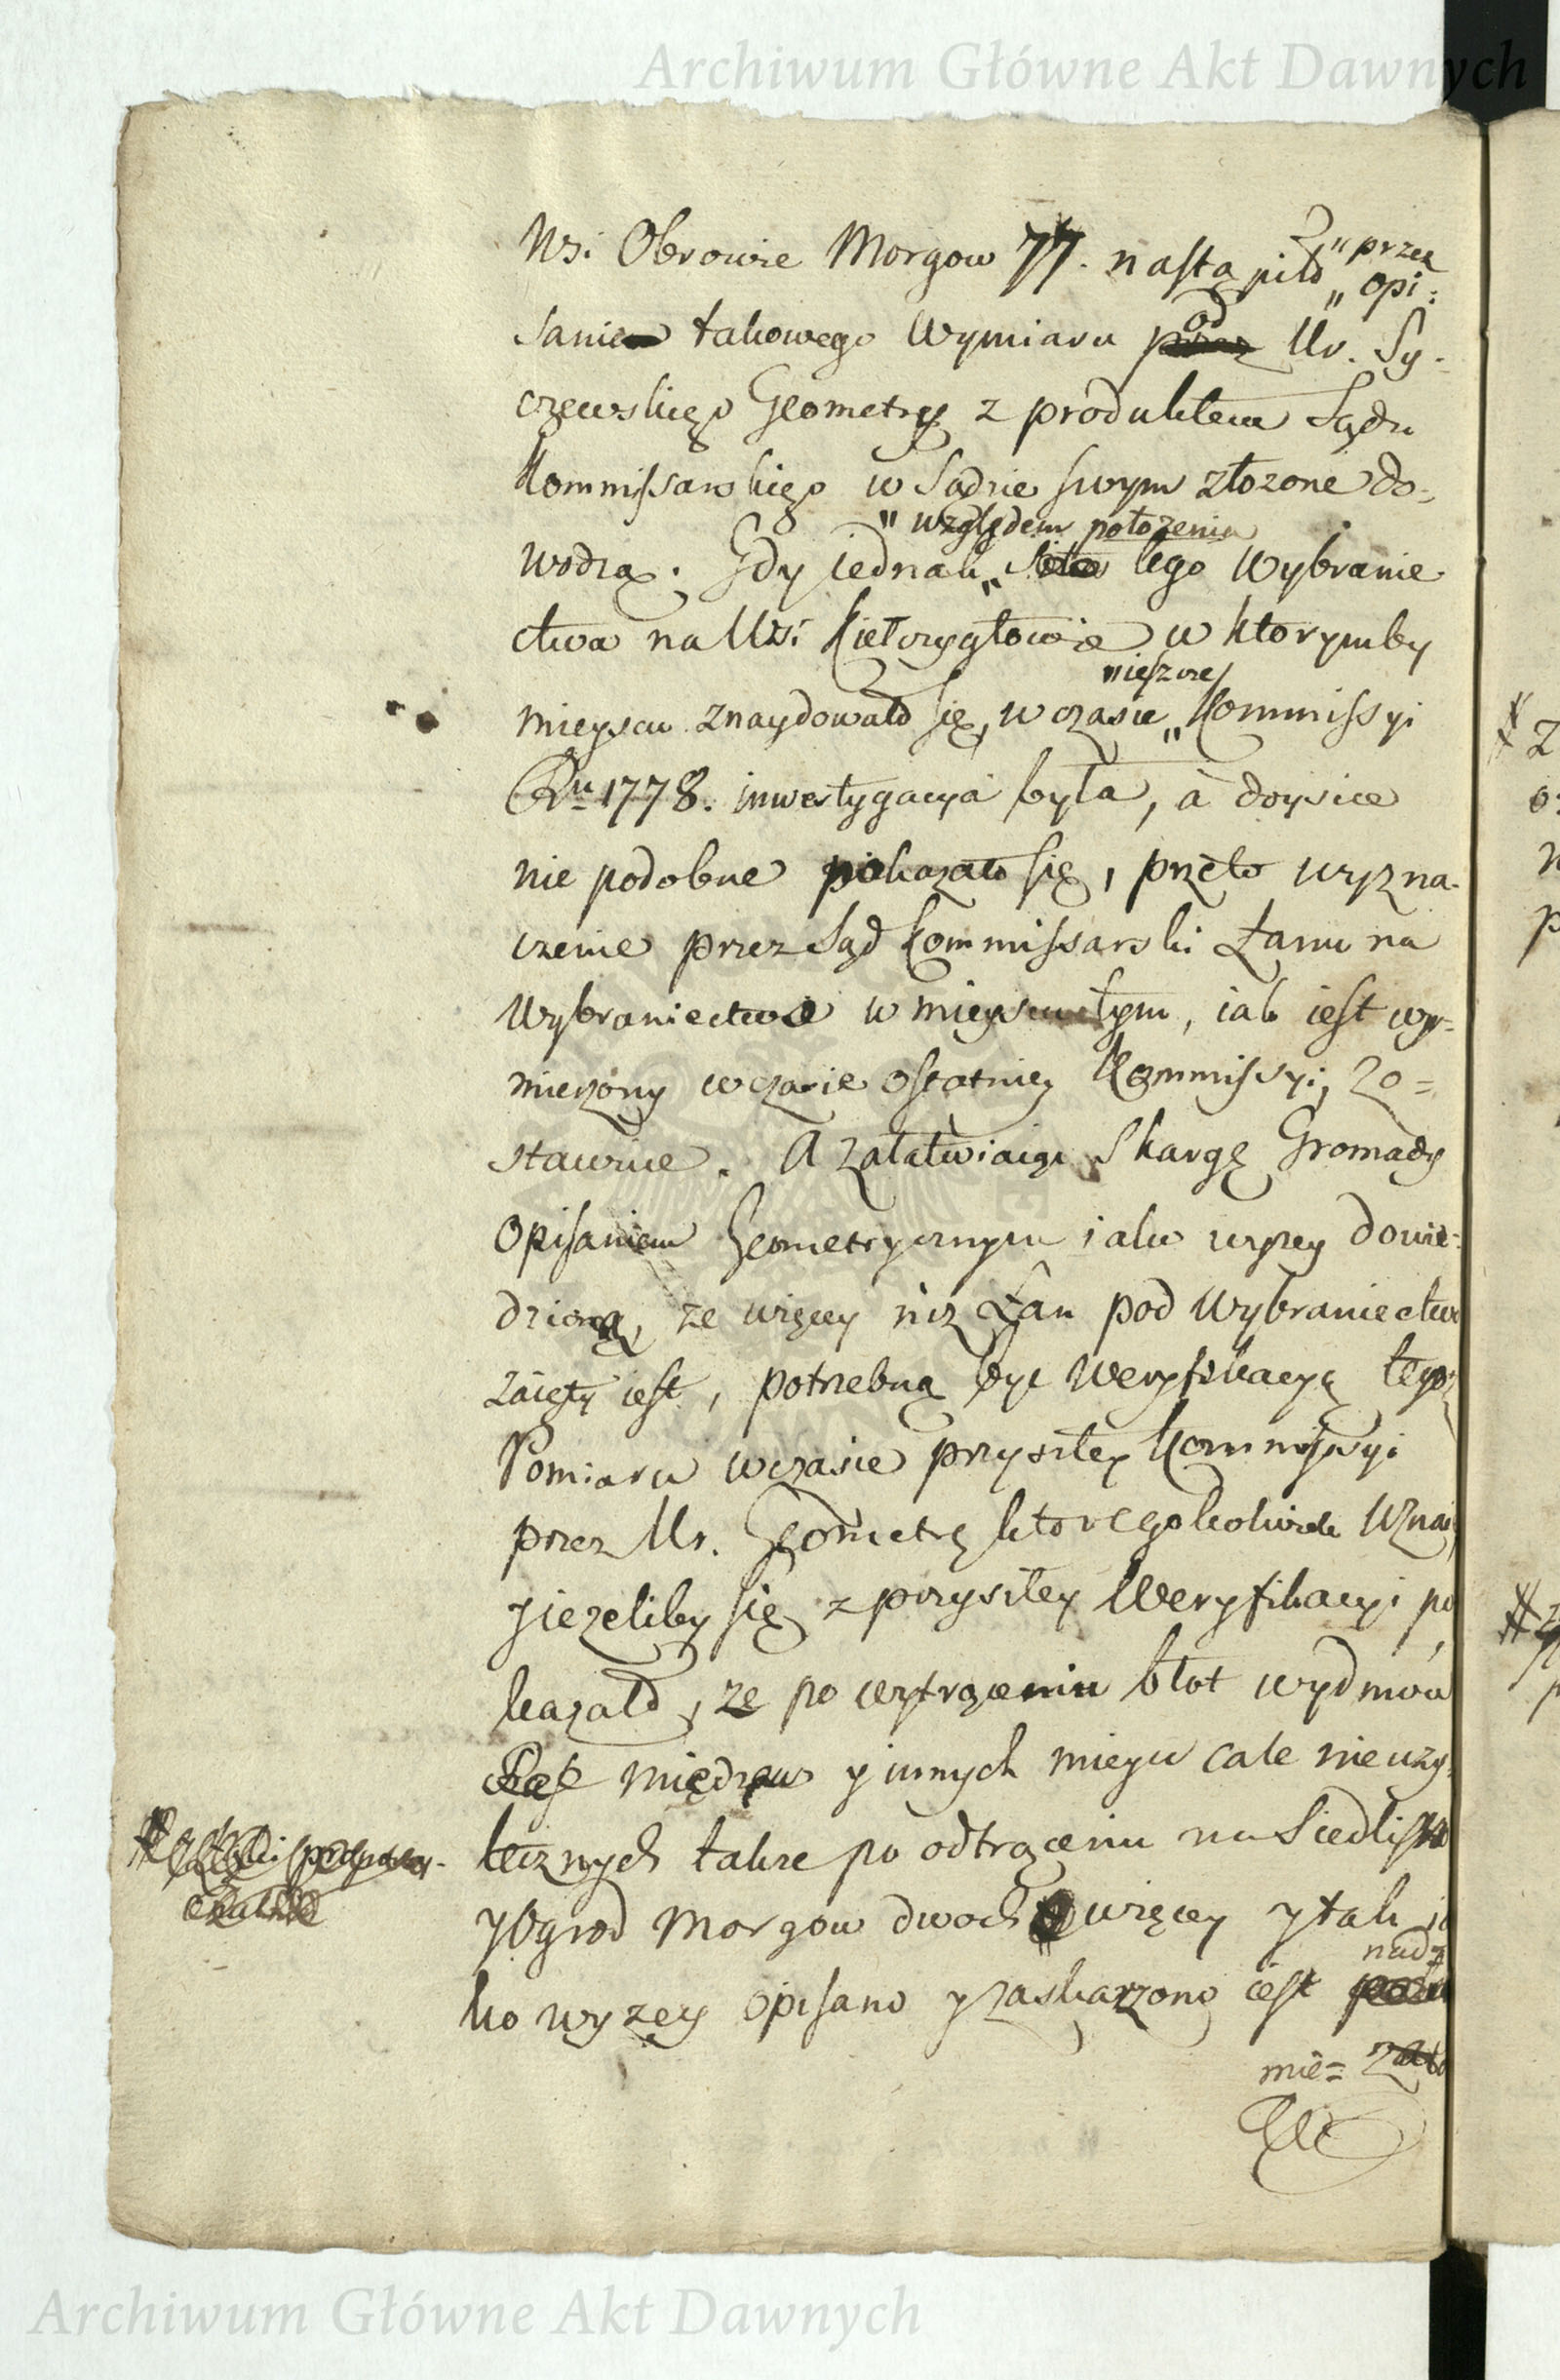 Archiwum Główne Akt Dawnych
Wsi Obrowie Morgow 77. nastąpiło „przez
„ opi:
sanie takowego Wymiaru od Ur. Sy-
czewskiego Geometry z produktem Sądu
Kommissarskiego w Sądzie swym złożone do-
„ względem położenia
wodzą. Gdy iednak „ tego Wybranie
ctwa na Wsi Kiełczygłowie w ktorymby
„ ieszcze
mieyscu znaydowało się, w czasie „ Kommissyi
Ru 1778. inwestygacya była, à doyście
nie podobne pokazało się, przeto wyzna-
czenie przez Sąd Kommissarski Łanu na
Wybraniectwo w mieyscu tym, iak iest wy-
mierzony w czasie ostatniey Kommissyi, zo=
stawuie. A załatwiaiąc Skargę Gromady
Opisaniem Geometrycznym iako wyzey dowie-
dzioną, ze więcey niz Łan pod Wybraniectwo
zaięty iest, potrzebną być Weryfikacyą tego
Pomiaru w czasie przyszłey Kommissyi
przez Ur. Geometrę ktoregokolwiek Uznaie
y iezeliby się z przyszłey Weryfikacyi po
kazało, ze po wytrąceniu błot wydmow
miedzow y innych mieysc cale nieuzy-
tecznych takze po odtrąceniu na Siedliska
y Ogrod Morgow dwoch więcey y tak ia
nadz
ko wyzey opisano y zaskarzono iest
mie=
Archiwum Główne Akt Dawnych